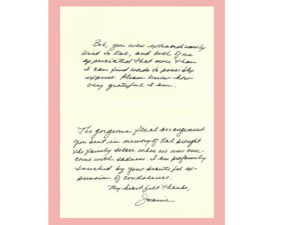 Bob, you were extraordinarily
kind to Kal, and both of us
appreciated that more than
I can find words to possibly
express. Please know how
very grateful I am.
The gorgeous floral arrangement
you sent in memory of Kal brought
the family solace when we were over-
come with sadness. I am profoundly
touched by your beautiful ex-
pression of condolence.
My heartfelt thanks,
Joanne